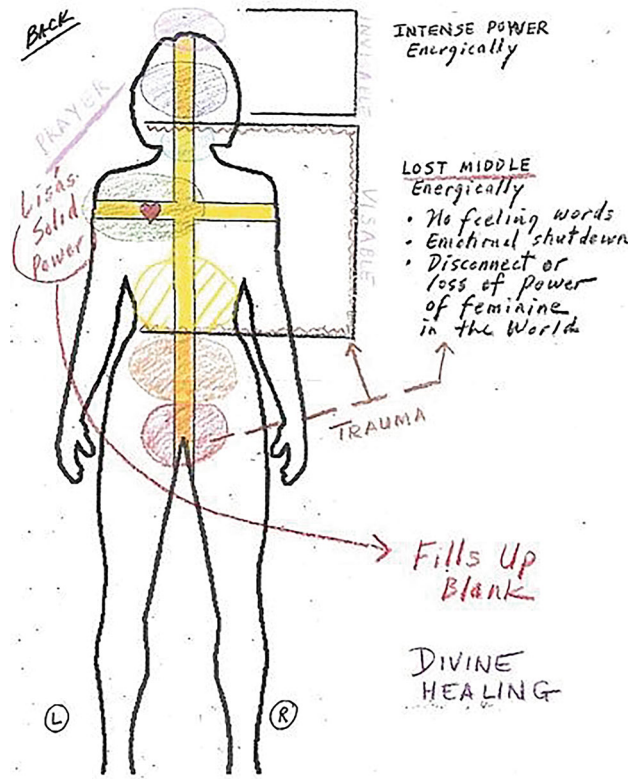 BACK
INTENSE POWER
Energically
PRAYER
Lisa's
Solid
Power
LOST MIDDLE
Energically
• No feeling words
• Emotional shutdown
• Disconnect or
loss of power
of feminine
in the World
VISABLE
TRAUMA
Fills Up
Blank
DIVINE
HEALING
L
R